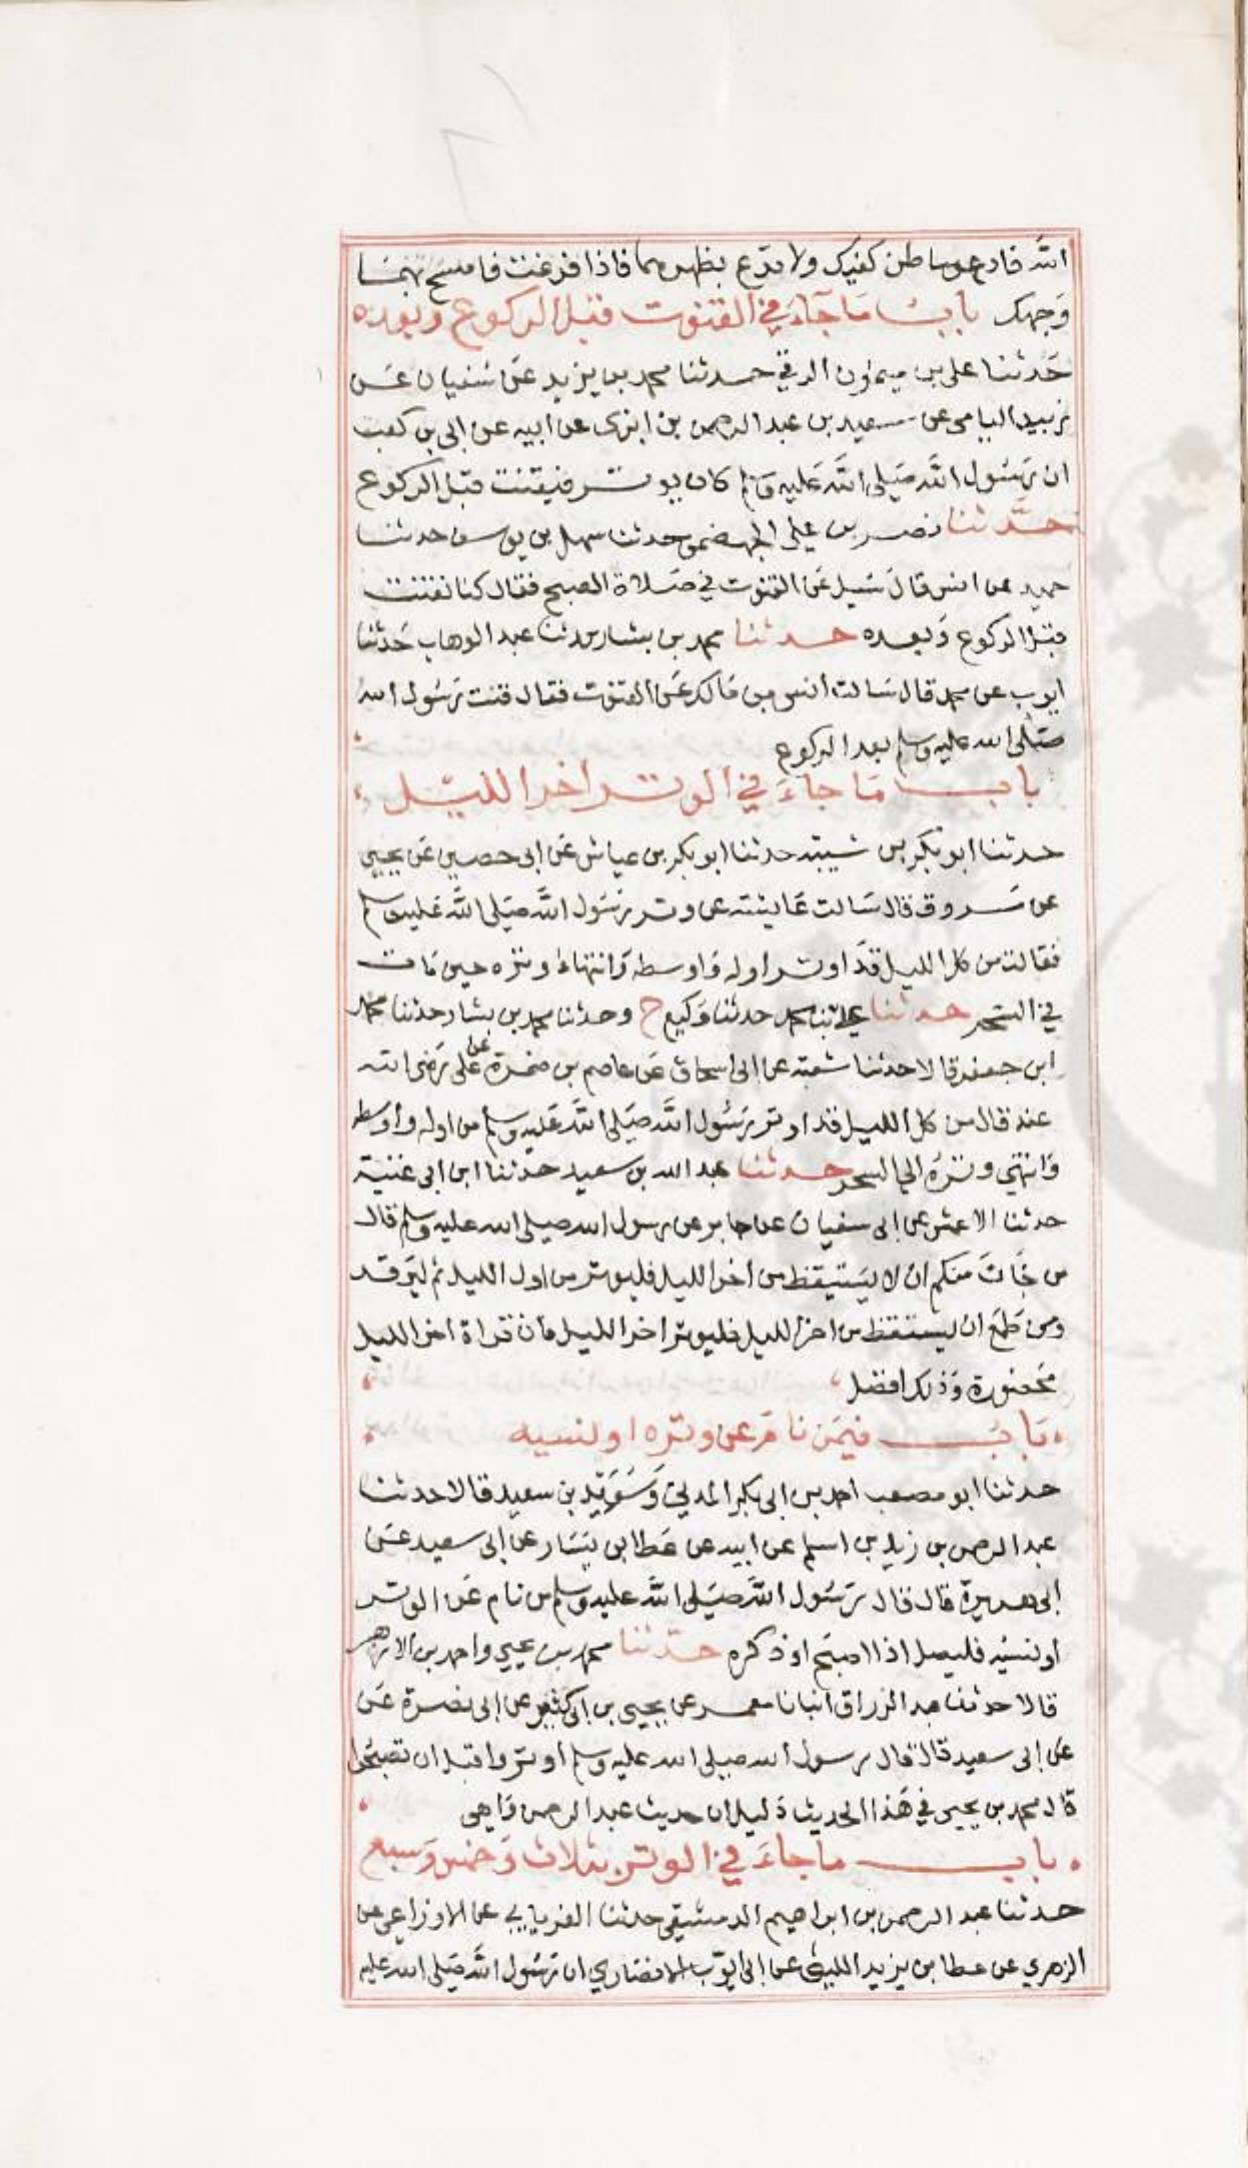 الله فادع بباطن كفيك ولا تدع بظهورهما فاذا فرغت فامسح بهما
وجهك باب ما جاء في القنوت قبل الركوع وبعده
حدثنا علي بن ميمون الرقي حدثنا محمد بن يزيد عن سفيان عن
زبيد اليامي عن سعيد بن عبد الرحمن بن ابزى عن ابيه عن ابي بن كعب
ان رسول الله صلى الله عليه وسلم كان يوتر فيقنت قبل الركوع
حدثنا نصر بن علي الجهضمي حدثنا سهل بن يوسف حدثنا
حميد عن انس قال سيل عن القنوت في صلاة الصبح فقال كنا نقنت
قبل الركوع وبعده حدثنا محمد بن بشار حدثنا عبد الوهاب حدثنا
ايوب عن محمد قال سالت انس بن مالك عن القنوت فقال قنت رسول الله
صلى الله عليه وسلم بعد الركوع
باب ما جاء في الوتر اخر الليل
حدثنا ابو بكر بن شيبة حدثنا ابو بكر بن عياش عن ابي حصين عن يحيى
عن مسروق قال سالت عايشة عن وتر رسول الله صلى الله عليه وسلم
فقالت من كل الليل قد اوتر اوله واوسطه وانتهاء وتره حين مات
في السحر حدثنا علي بن محمد حدثنا وكيع ح وحدثنا محمد بن بشار حدثنا محمد
ابن جعفر قالا حدثنا شعبة عن ابي اسحاق عن عاصم بن ضمرة عن علي رضي الله
عنه قال من كل الليل قد اوتر رسول الله صلى الله عليه وسلم من اوله واوسطه
وانتهى وتره الى السحر حدثنا عبد الله بن سعيد حدثنا ابن ابي غنية
حدثنا الاعمش عن ابي سفيان عن جابر عن رسول الله صلى الله عليه وسلم قال
من خاف منكم ان لا يستيقظ من اخر الليل فليوتر من اول الليل ثم ليرقد
ومن طمع ان يستقظ من اخر الليل فليوتر اخر الليل فان قراة اخر الليل
محضورة وذلك افضل
باب فيمن نام عن وتره او لنسيه
حدثنا ابو مصعب احمد بن ابي بكر المدني وسويد بن سعيد قالا حدثنا
عبد الرحمن بن زيد بن اسلم عن ابيه عن عطا بن يسار عن ابي سعيد عن
ابي هريرة قال قال رسول الله صلى الله عليه وسلم من نام عن الوتر
او نسيه فليصل اذا اصبح او ذكره حدثنا محمد بن يحيى واحمد بن الازهر
قالا حدثنا عبد الرزاق انبانا معمر عن يحيى بن ابي كثير عن ابي نضرة عن
عن ابي سعيد قال قال رسول الله صلى الله عليه وسلم اوتروا قبل ان تصبحوا
قال محمد بن يحيى في هذا الحديث دليل ان حديث عبد الرحمن واهي
باب ما جاء في الوتر بثلاث وخمس وسبع
حدثنا عبد الرحمن بن ابراهيم الدمشقي حدثنا الفريابي عن الاوزاعي عن
الزهري عن عطا بن يزيد الليثي عن ابي ايوب الانصاري ان رسول الله صلى الله عليه